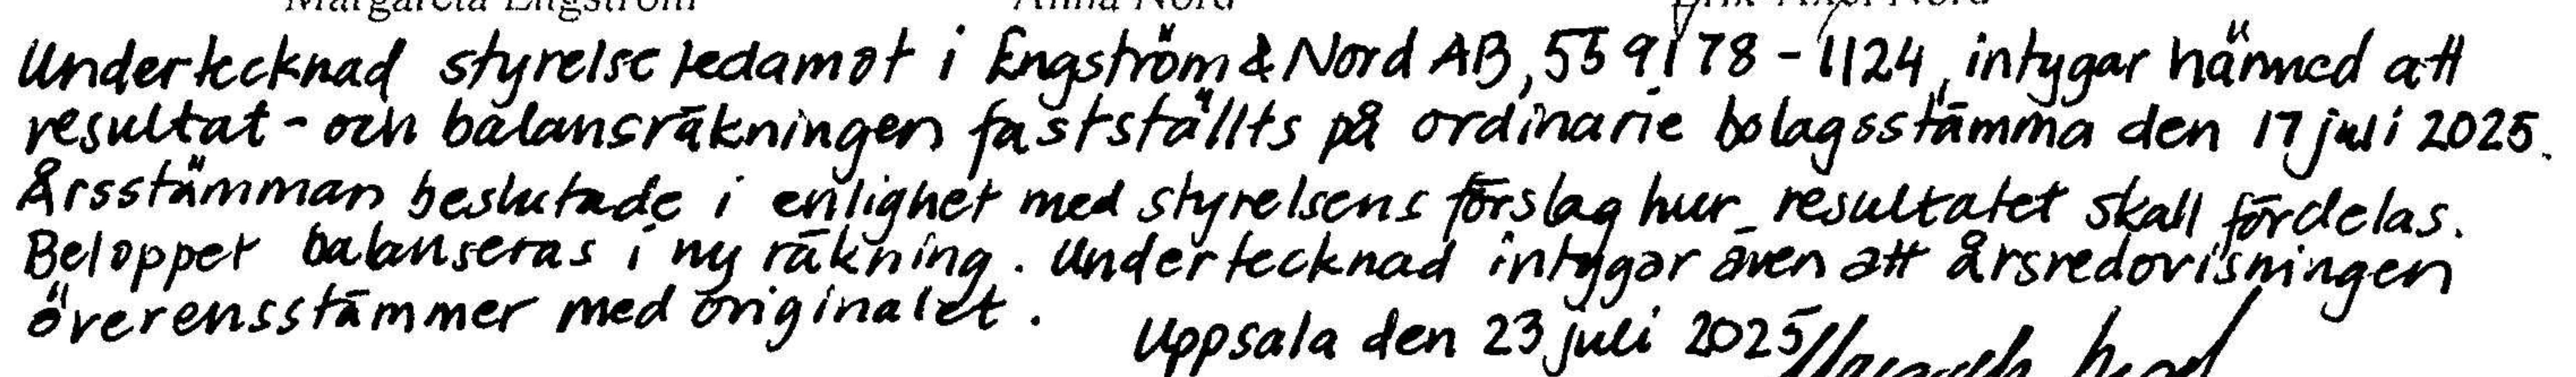 Margareta Engström Anna Nord Erik Axel Nord
Undertecknad styrelseledamot i Engström & Nord AB, 559178-1124, intygar härmed att
resultat- och balansräkningen fastställts på ordinarie bolagsstämma den 17 juli 2025.
Årsstämman beslutade i enlighet med styrelsens förslag hur resultatet skall fördelas.
Beloppet balanseras i ny räkning. Undertecknad intygar även att årsredovisningen
överensstämmer med originalet.
Uppsala den 23 juli 2025